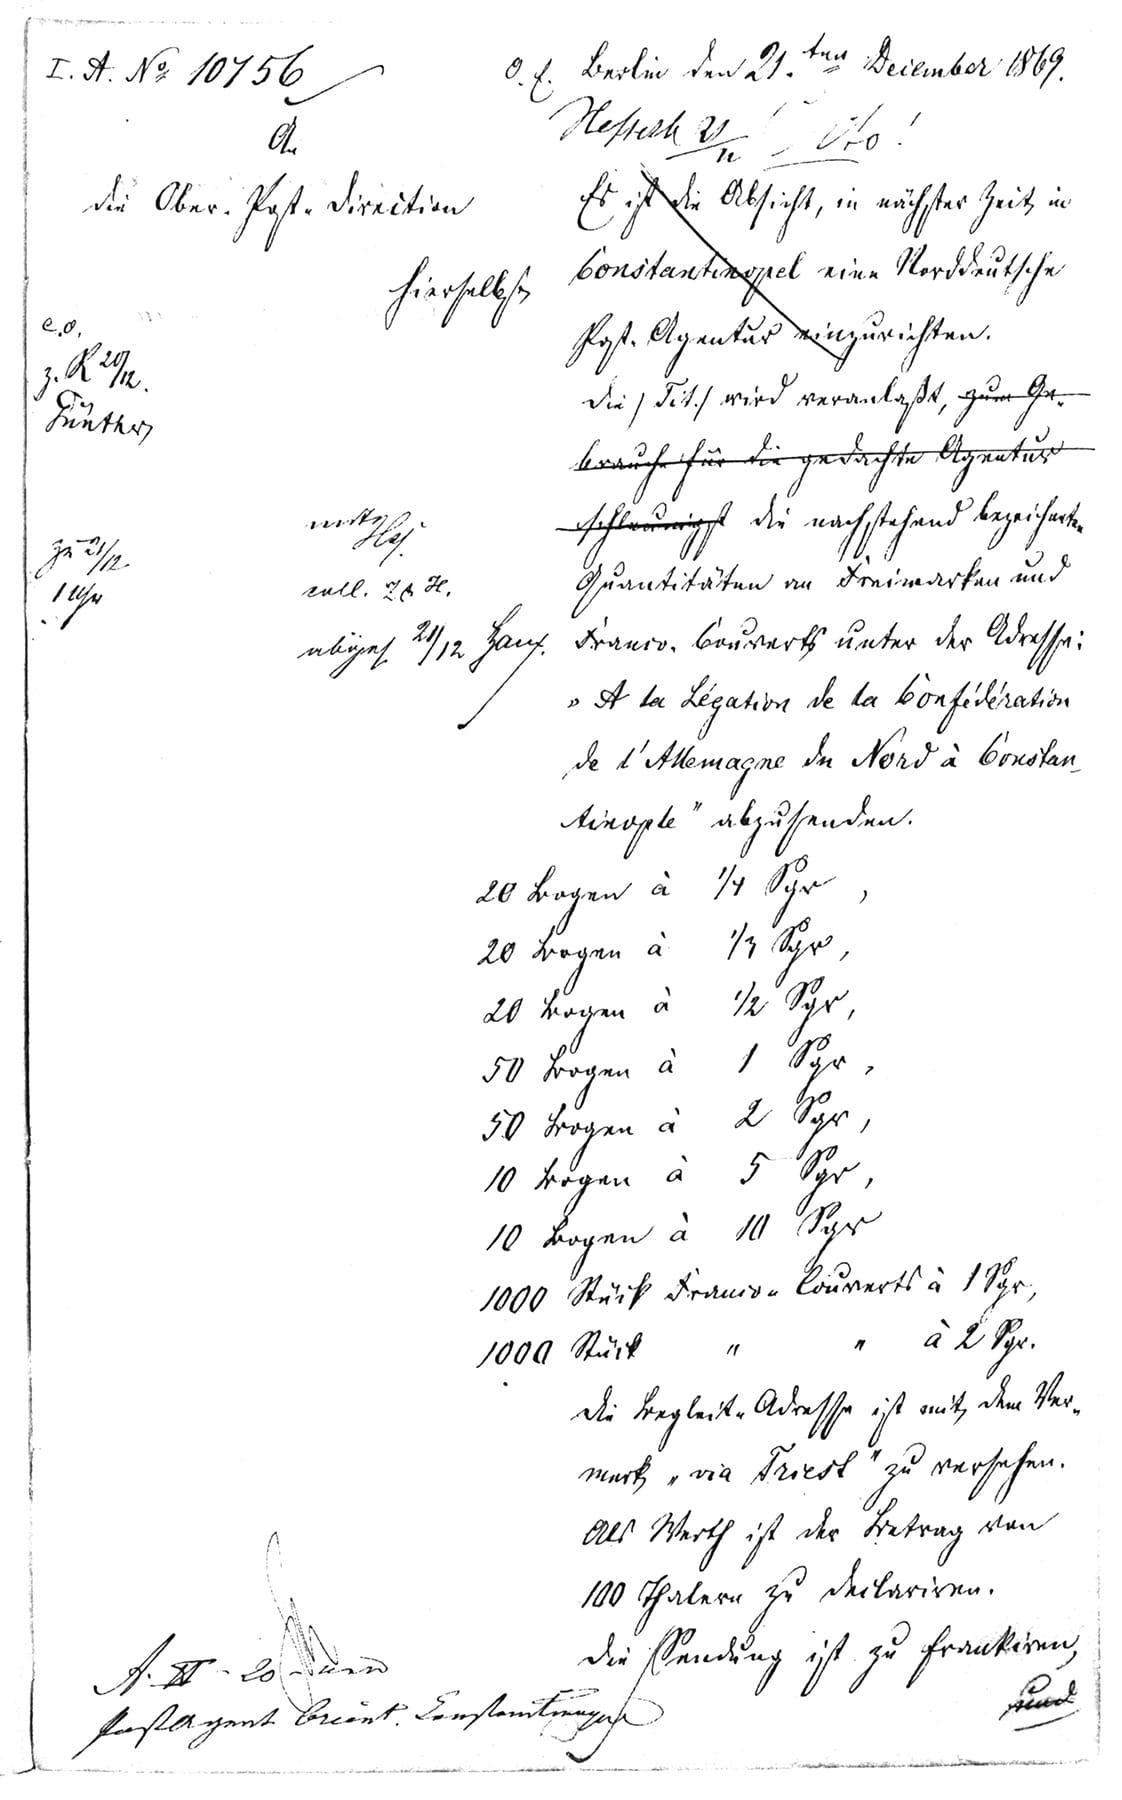 I. A. No 10756
Berlin den 21.ten December 1869.
An
die Ober-Post-Direction
hierselbst
c.o.
z. R 20/12.
Günther
zu 21/12
1 Uhr
coll.
abges 21/12
Es ist die Absicht, in nächster Zeit in
Constantinopel eine Norddeutsche
Post-Agentur einzurichten.
Die /Tit./ wird veranlaßt, zum Ge-
brauche für die gedachte Agentur
schleunigst die nachstehend bezeichneten
Quantitäten an Freimarken und
Franco-Couverts unter der Adresse:
„A la Légation de la Confédération
de l'Allemagne du Nord à Constan-
tinople" abzusenden.
20 Bogen à 1/4 Sgr,
20 Bogen à 1/3 Sgr,
20 Bogen à 1/2 Sgr,
50 Bogen à 1 Sgr,
50 Bogen à 2 Sgr,
10 Bogen à 5 Sgr,
10 Bogen à 10 Sgr
1000 Stück Franco-Couverts à 1 Sgr,
1000 Stück " " à 2 Sgr.
Die Begleit-Adresse ist mit dem Ver-
merk „via Triest" zu versehen.
Als Werth ist der Betrag von
100 Thalern zu declariren.
Die Sendung ist zu frankiren,
und
A. II - 20
Postagent Orient. Constantinopel